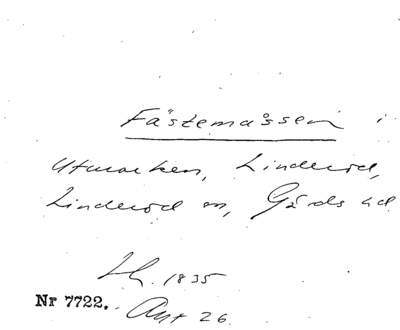 Fästemåssen i
Utmarken, Linderöd,
Linderöd sn, Gärds hd
Lh. 1835
Nr 7722. Ant 26